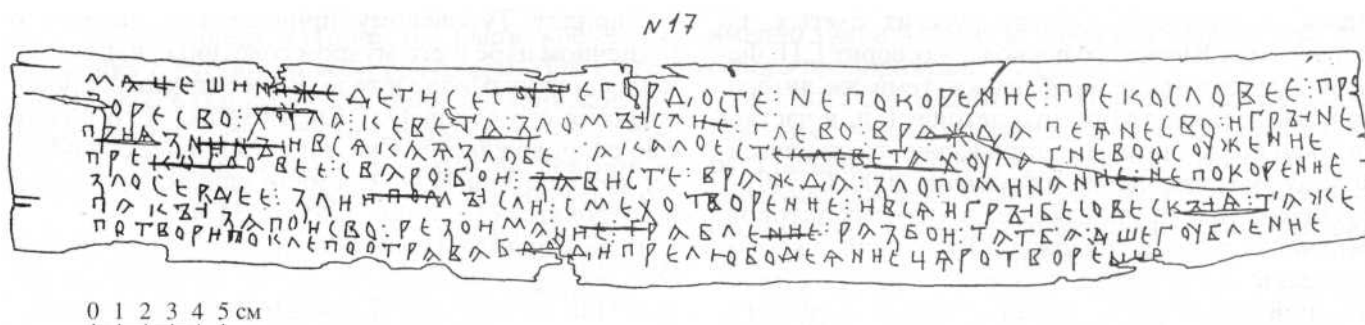 N17
МАЧЕШИНЖЕ ДЕТИ СЕ СУТЕ ГОРДОСТЕ: НЕПОКОРЕНИЕ: ПРЕКОСЛОВЕЕ: ПРЕ
ЗОРЕСВО: ХУЛА: КЛЕВЕТА: ЗЛОМЪІСЛИЕ: ГНЕВО: ВРАЖДА ПЕѦНЕСВО: ИГРЪІНЕ
ВСѦКАѦ ЗЛОБЕ : КЛЕВЕТА ХОУЛА ГНЕВО ОСОУЖЕНИЕ
ПРЕКОСЛОВЕЕ: СВАРО: БОИ: ЗАВИСТЕ: ВРАЖДА: ЗЛОПОМИНАНИЕ: НЕПОКОРЕНИЕ
ЗЛОСЕРДЕЕ: ЗЛИИ ПОМЪІСЛИ: СМЕХОТВОРЕНИЕ: И ВСѦ ИГРЪІ БЕСОВЕСКЪІѦ: ТАЖЕ
ПАКЪІ: ЗАПОИСВО: РЕЗОИМАНИЕ: ГРАБЛЕНИЕ: РАЗБОИ: ТАТБА: ДШЕГОУБЛЕНИЕ
ПОТВОРИ ПОКЛЕПО ОТРАВА ПРЕЛЮБОДЕѦНИЕ ЧАРОТВОРЕНИЕ
0 1 2 3 4 5 см